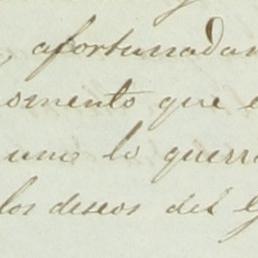 , afortunadam
omento que e
uno lo querr
los deseos del G